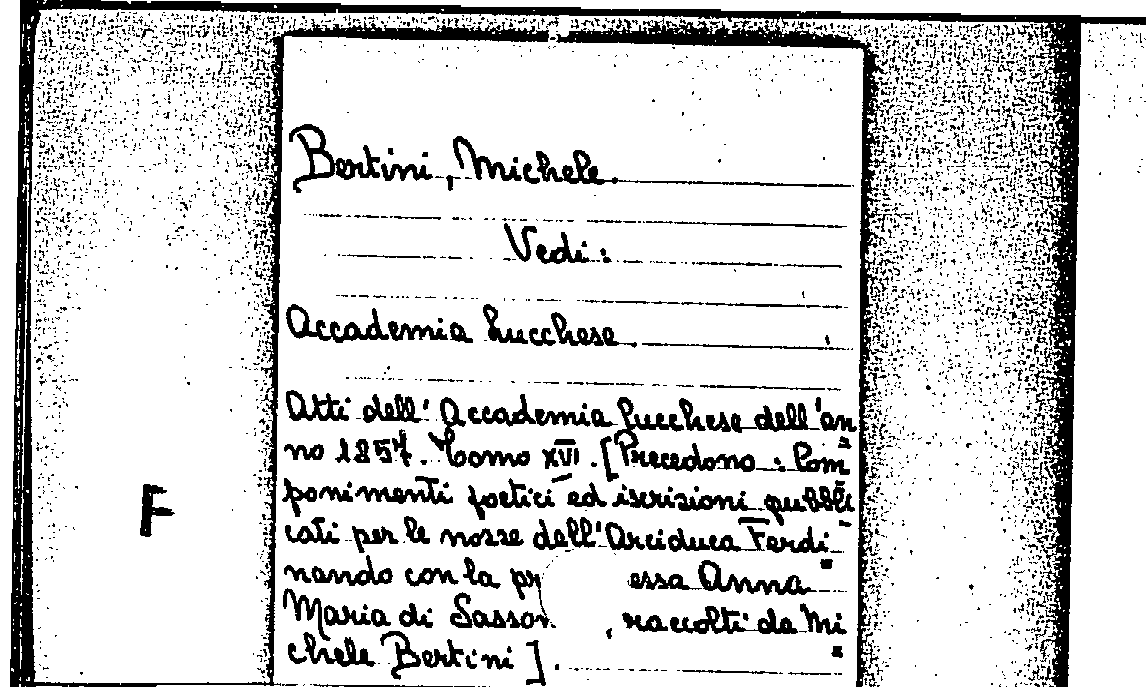 Bertini, Michele.
Vedi:
Accademia Lucchese.
Atti dell' Accademia Lucchese dell'an=
no 1857. Tomo XVI. [Precedono: Com=
ponimenti poetici ed iscrizioni pubbli=
cati per le nozze dell'Arciduca Ferdi=
F
nando con la pr essa Anna
Maria di Sasson , raccolti da Mi=
chele Bertini].